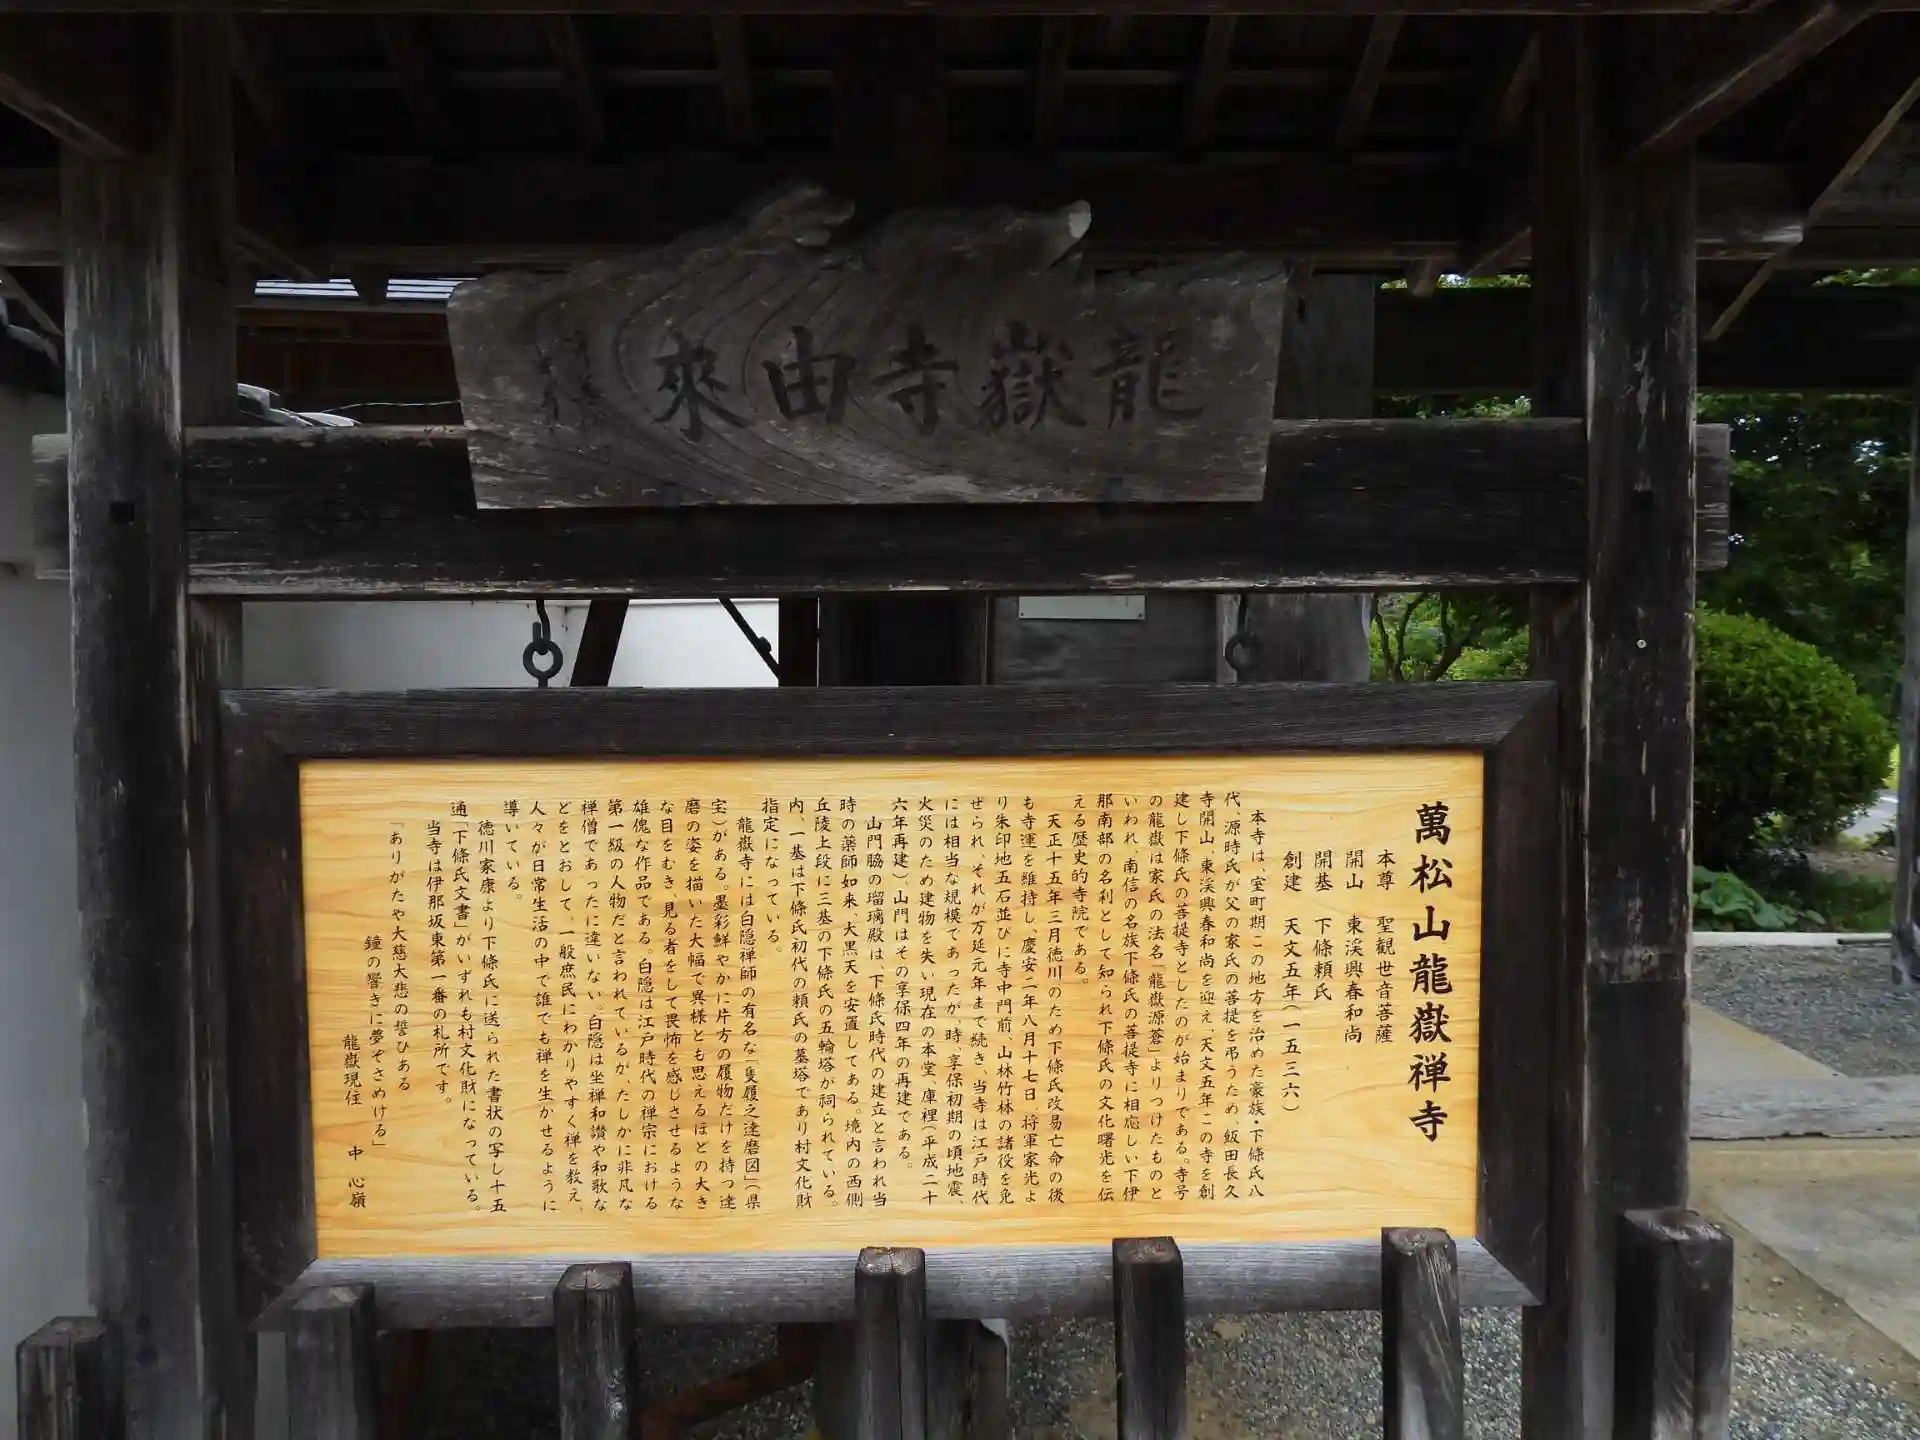 龍嶽寺由来
萬松山龍嶽禅寺
本尊 聖観世音菩薩
開山 東渓興春和尚
開基 下條頼氏
創建 天文五年(一五三六)
本寺は、室町期この地方を治めた豪族・下條氏八
代、源時氏が父の家氏の菩提を弔うため、飯田長久
寺開山、東渓興春和尚を迎え、天文五年この寺を創
建し下條氏の菩提寺としたのが始まりである。寺号
の龍嶽は家氏の法名「龍嶽源蒼」よりつけたものと
いわれ、南信の名族下條氏の菩提寺に相応しい下伊
那南部の名刹として知られ下條氏の文化曙光を伝
える歴史的寺院である。
天正十五年三月徳川のため下條氏改易亡命の後
も寺運を維持し、慶安二年八月十七日、将軍家光よ
り朱印地五石並びに寺中門前、山林竹林の諸役を免
ぜられ、それが万延元年まで続き、当寺は江戸時代
には相当な規模であったが、時、享保初期の頃地震、
火災のため建物を失い現在の本堂、庫裡(平成二十
六年再建)、山門はその享保四年の再建である。
山門脇の瑠璃殿は、下條氏時代の建立と言われ当
時の薬師如来、大黒天を安置してある。境内の西側
丘陵上段に三基の下條氏の五輪塔が祠られている。
内、一基は下條氏初代の頼氏の墓塔であり村文化財
指定になっている。
龍嶽寺には白隠禅師の有名な「隻履之達磨図」(県
宝)がある。墨彩鮮やかに片方の履物だけを持つ達
磨の姿を描いた大幅で異様とも思えるほどの大き
な目をむき、見る者をして畏怖を感じさせるような
雄傀な作品である。白隠は江戸時代の禅宗における
第一級の人物だと言われているが、たしかに非凡な
禅僧であったに違いない。白隠は坐禅和讃や和歌な
どをとおして、一般庶民にわかりやすく禅を教え、
人々が日常生活の中で誰でも禅を生かせるように
導いている。
徳川家康より下條氏に送られた書状の写し十五
通「下條氏文書」がいずれも村文化財になっている。
当寺は伊那坂東第一番の札所です。
「ありがたや大慈大悲の誓ひある
鐘の響きに夢ぞさめける」
龍嶽現住 中 心嶺